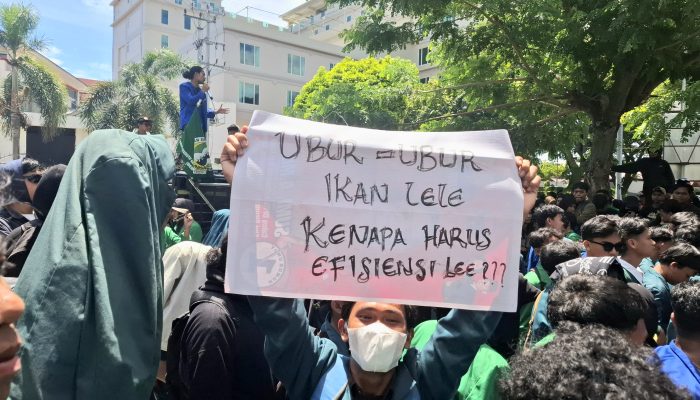 UBUR =UBUR
IKAN LELE
KENAPA HARUS
EFISIENSI LEE???